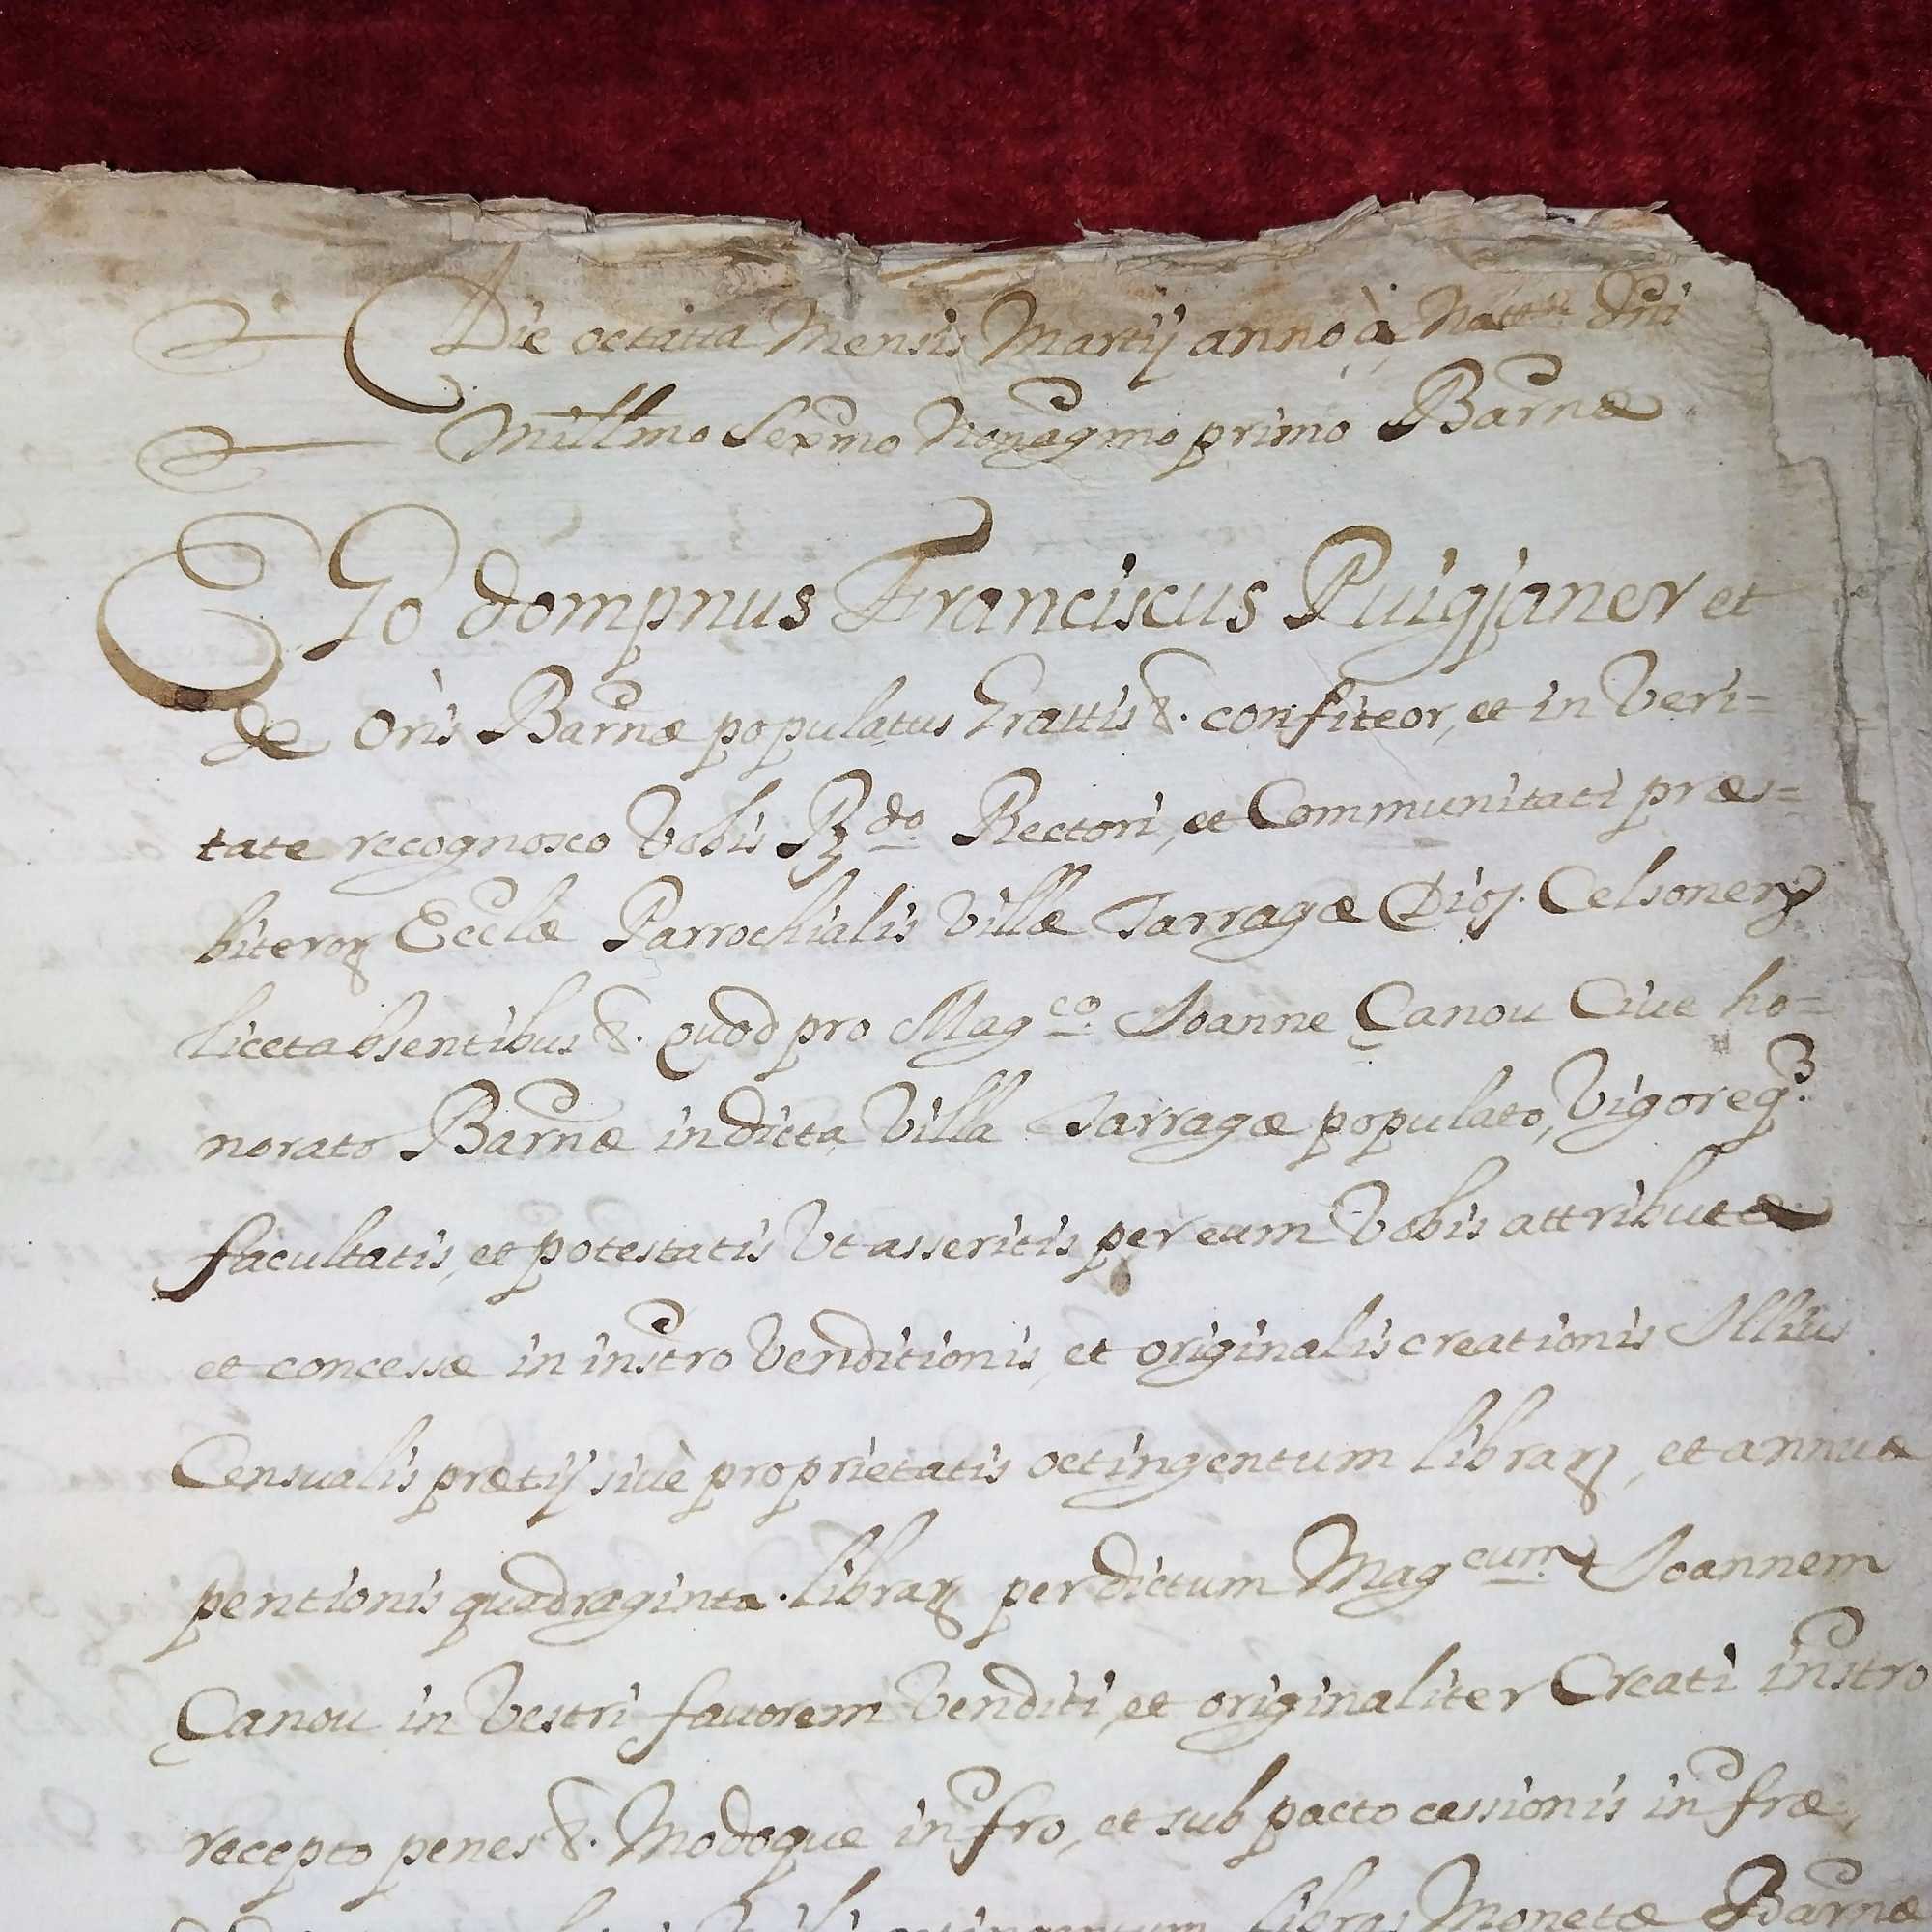 Die octaua Mensis Martij anno à Nattte Dni
Millmo Sexmo Nonagmo primo Barnæ
Ego dompnus Franciscus Puigjaner et
de Oris Barnæ populatus Grattis &. confiteor, et in Veri-
tate recognosco Vobis Rdo Rectori, et Communitati præs=
biteroꝝ Ecclæ Parrochialis Villæ Tarragæ Dioj. Celsoneñ
licet absentibus &. quod pro Magco. Joanne Çanou Ciue ho=
norato Barnæ in dicta Villa Tarragæ populato, Vigoreq3.
facultatis, et potestatis Vt asseritis per eum Vobis attributæ
et concessæ in instro Venditionis, et originalis creationis Illius
Censualis prætij siuè proprietatis octingentum libraꝝ, et annuæ
pentionis quadraginta libraꝝ per dictum Magcum. Joannem
Çanou in Vestri fauorem Venditi, et originaliter Creati instro
recepto penes &. Modoque infro, et sub pacto cessionis infræ,
libras Monetæ Barnæ